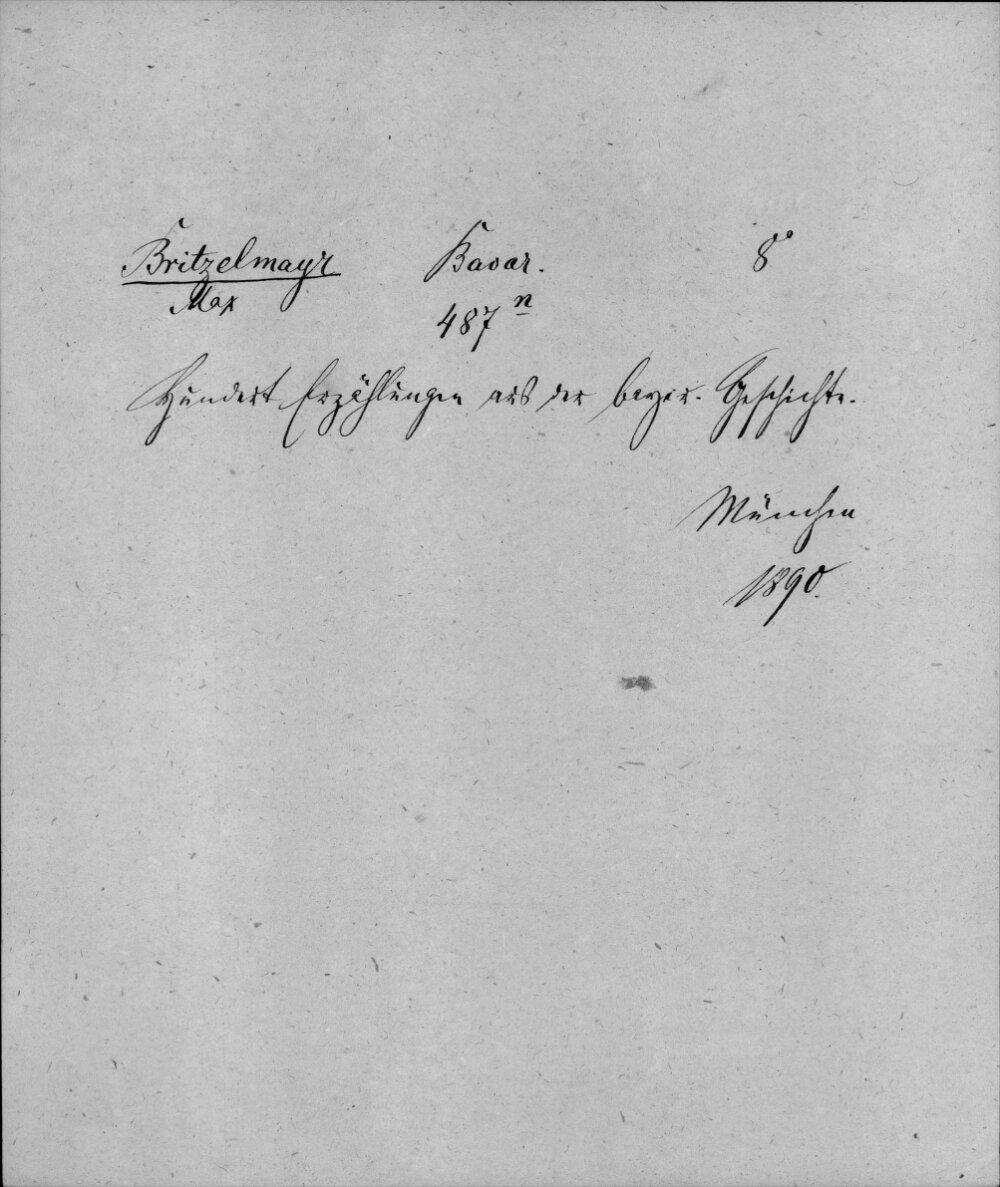 Britzelmayr Bavar. 8°
Max
487 n
Hundert Erzählungen aus der bayer. Geschichte.
München
1890.